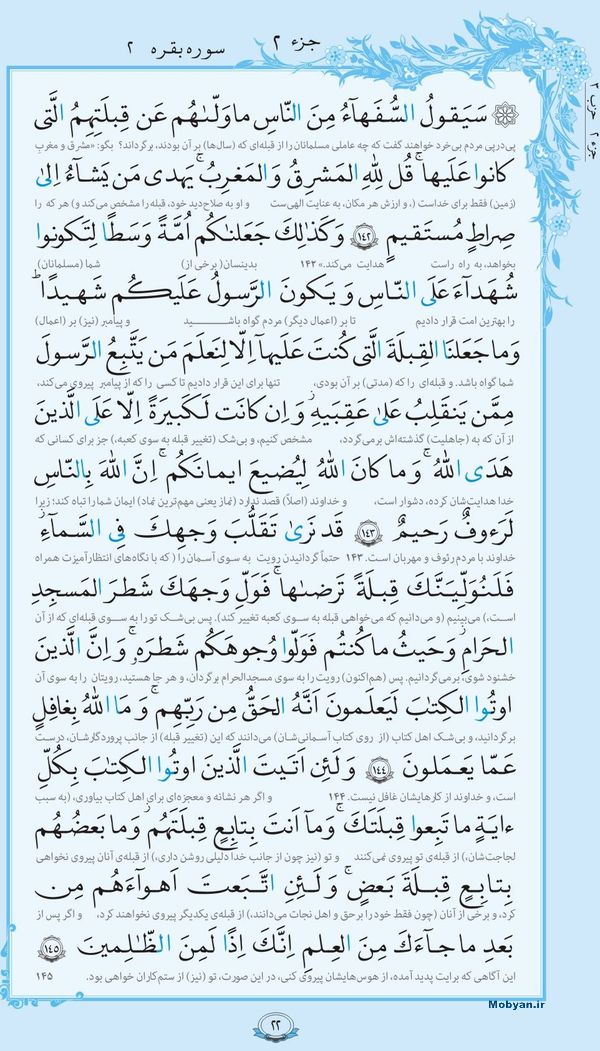 جزء ۲
سوره بقره ۲
حزب ۳
جزء ۲
سَيَقُولُ السُّفَهآءُ مِنَ النّاسِ ماوَلّىٰهُم عَن قِبلَتِهِمُ الَّتى
پی‌درپی مردم بی‌خرد خواهند گفت که چه عاملی مسلمانان را از قبله‌ای که (سال‌ها) بر آن بودند، برگرداند؟ بگو: «مشرق و مغربِ
كانوا عَلَيها ۚ قُل لِلّٰهِ المَشرِقُ وَ المَغرِبُ ۚ يَهدى مَن يَشآءُ اِلىٰ
(زمین) فقط برای خداست (، و ارزش هر مکان، به عنایت الهی‌ست و او به صلاح‌دید خود، قبله را مشخص می‌کند و) هر که را
صِراطٍ مُستَقيمٍ ﴿١٤٢﴾ وَ كَذٰلِكَ جَعَلنٰكُم اُمَّةً وَسَطًا لِتَكونوا
بخواهد، به راه راست هدایت می‌کند.» ۱۴۲ بدینسان (برخی از) شما (مسلمانان)
شُهَدآءَ عَلَى النّاسِ وَ يَكونَ الرَّسولُ عَلَيكُم شَهيدًا ۗ
را بهترین امت قرار دادیم تا بر (اعمال دیگر) مردم گواه باشید و پیامبر (نیز) بر (اعمال)
وَ ما جَعَلنَا القِبلَةَ الَّتى كُنتَ عَلَيهآ اِلّا لِنَعلَمَ مَن يَتَّبِعُ الرَّسولَ
شما گواه باشد. و قبله‌ای را که (مدتی) بر آن بودی، تنها برای این قرار دادیم تا کسی را که از پیامبر پیروی می‌کند،
مِمَّن يَنقَلِبُ عَلىٰ عَقِبَيهِ ۚ وَ اِن كانَت لَكَبيرَةً اِلّا عَلَى الَّذينَ
از آن که به (جاهلیت) گذشته‌اش برمی‌گردد، مشخص کنیم، و بی‌شک (تغییر قبله به سوی کعبه،) جز برای کسانی که
هَدَى اللّٰهُ ۗ وَ ما كانَ اللّٰهُ لِيُضيعَ ايمانَكُم ۚ اِنَّ اللّٰهَ بِالنّاسِ
خدا هدایت‌شان کرده، دشوار است، و خداوند (اصلاً) قصد ندارد (نماز یعنی مهم‌ترین نماد) ایمان شما را تباه کند؛ زیرا
لَرَءوفٌ رَحيمٌ ﴿١٤٣﴾ قَد نَرىٰ تَقَلُّبَ وَجهِكَ فِى السَّمآءِ ۖ
خداوند با مردم رئوف و مهربان است. ۱۴۳ حتماً گردانیدن رویت به سوی آسمان را (که با نگاه‌های انتظارآمیزت همراه
فَلَنُوَلِّيَنَّكَ قِبلَةً تَرضىٰها ۚ فَوَلِّ وَجهَكَ شَطرَ المَسجِدِ
است،) می‌بینیم (و می‌دانیم که می‌خواهی قبله به سوی کعبه تغییر کند). پس بی‌شک تو را به سوی قبله‌ای که از آن
الحَرامِ ۚ وَ حَيثُ ما كُنتُم فَوَلّوا وُجوهَكُم شَطرَهٗ ۗ وَ اِنَّ الَّذينَ
خشنود شوی، برمی‌گردانیم. پس (هم‌اکنون) رویت را به سوی مسجدالحرام برگردان، و هر جا هستید، رویتان را به سوی آن
اوتُوا الكِتٰبَ لَيَعلَمونَ اَنَّهُ الحَقُّ مِن رَبِّهِم ۗ وَ مَا اللّٰهُ بِغافِلٍ
برگردانید، و بی‌شک اهل کتاب (از روی کتاب آسمانی‌شان) می‌دانند که این (تغییر قبله) از جانب پروردگارشان، درست
عَمّا يَعمَلونَ ﴿١٤٤﴾ وَ لَئِن اَتَيتَ الَّذينَ اوتُوا الكِتٰبَ بِكُلِّ
است، و خداوند از کارهایشان غافل نیست. ۱۴۴ و اگر هر نشانه و معجزه‌ای برای اهل کتاب بیاوری، (به سبب
ءايَةٍ ما تَبِعوا قِبلَتَكَ ۚ وَ مآ اَنتَ بِتابِعٍ قِبلَتَهُم ۚ وَ ما بَعضُهُم
لجاجت‌شان،) از قبله‌ی تو پیروی نمی‌کنند و تو (نیز چون از جانب خدا دلیلی روشن داری،) از قبله‌ی آنان پیروی نخواهی
بِتابِعٍ قِبلَةَ بَعضٍ ۚ وَ لَئِنِ اتَّبَعتَ اَهوآءَهُم مِن
کرد، و برخی از آنان (چون فقط خود را بر حق و اهل نجات می‌دانند،) از قبله‌ی یکدیگر پیروی نخواهند کرد، و اگر پس از
بَعدِ ما جآءَكَ مِنَ العِلمِ اِنَّكَ اِذًا لَمِنَ الظّٰلِمينَ ﴿١٤٥﴾
این آگاهی که برایت پدید آمده، از هوس‌هایشان پیروی کنی، در این صورت، تو (نیز) از ستم‌کاران خواهی بود. ۱۴۵
Mobyan.ir
۲۲